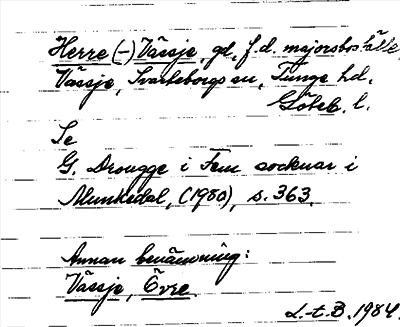 Herre (-) Vässje, gd, f.d. majorsboställe,
Vässje, Svarteborgs sn, Tunge hd,
Göteb. l.
Se
G. Drougge i Fem socknar i
Munkedal, (1980), s. 363.
Annan benämning:
Vässje, Övre.
L.-t. B. 1984.